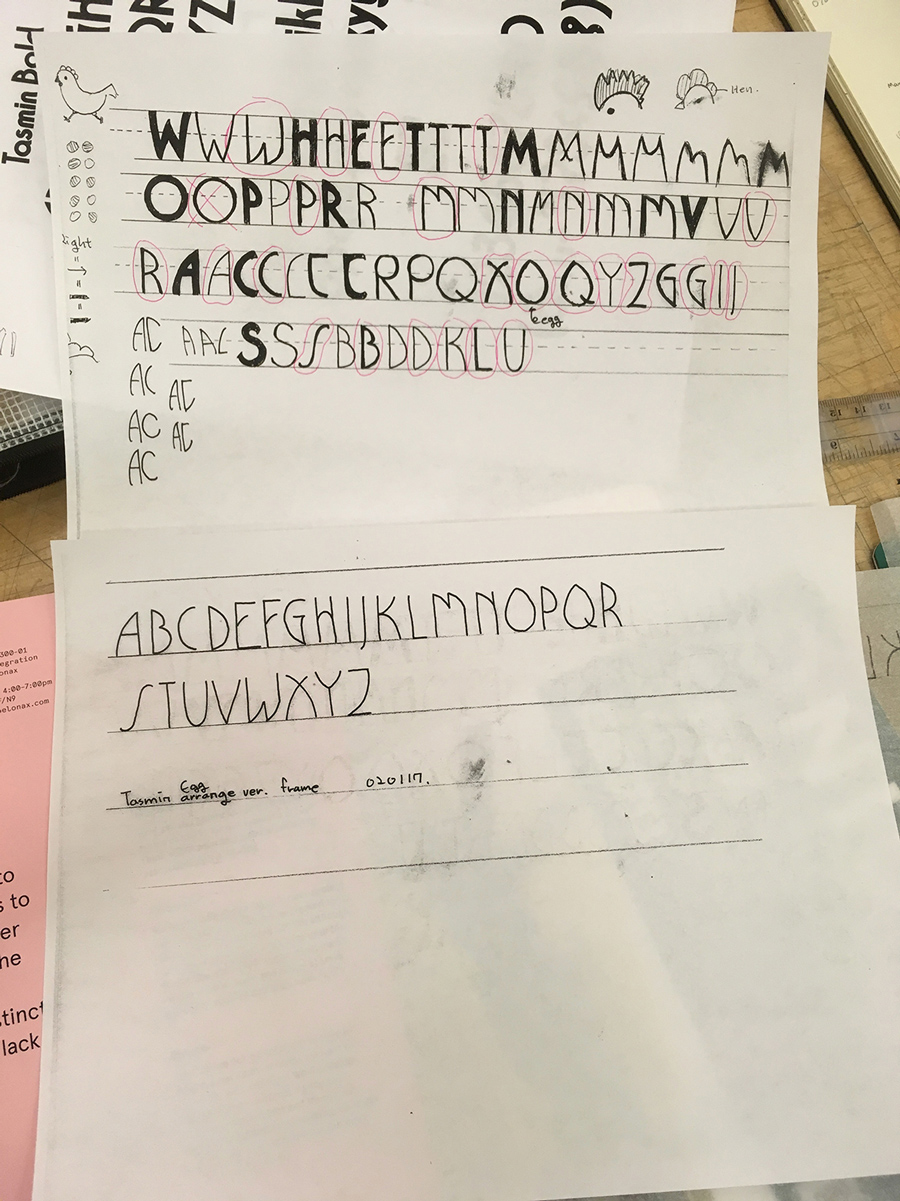 Tasmin Bold
Hen.
WWWHHEETTTTTMMMMMMMM
OOPPPPRR MMNMNMMVVV
RAACCCCCCRPQXOQYZGGIJ
egg
AC AAC SSSBBDDKLU
AC AC
AC AC
AC
ight
ABCDEFGHIJKLMNOPQR
STUVWXYZ
Egg
Tasmin arrange ver. frame 020117.
300-01
egration
lonax
4:00-7:00pm
/N9
elonax.com
to
s to
er
he
stinct
lack